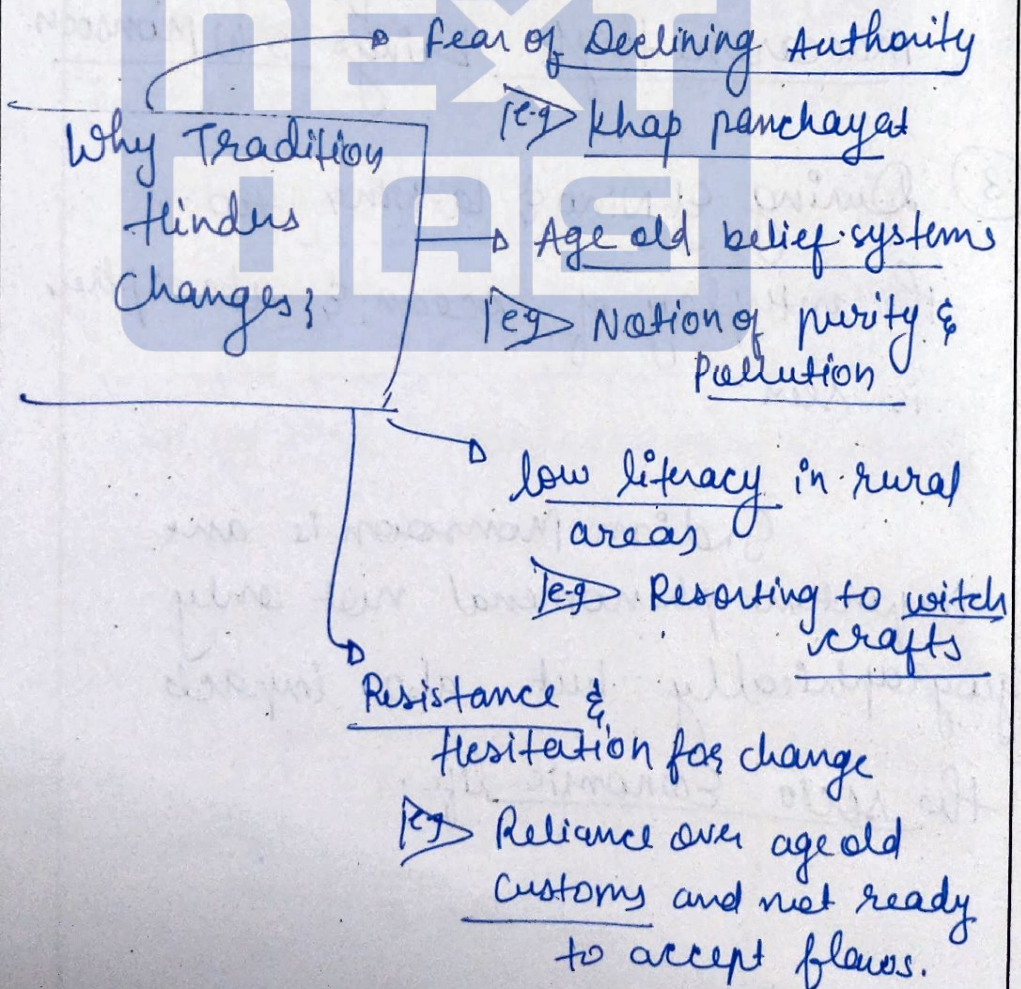 NEXT
IAS
Why Tradition
Hinders
Changes;
Fear of Declining Authority
e.g Khap panchayat
Age old belief systems
eg Notion of purity &
Pollution
low literacy in rural
areas
e.g Resorting to witch
crafts
Resistance &
Hesitation for change
eg Reliance over age old
customs and not ready
to accept flaws.